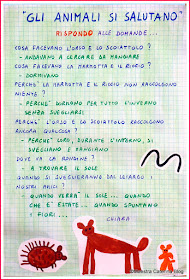 "GLI ANIMALI SI SALUTANO"
RISPONDO ALLE DOMANDE...
COSA FACEVANO L'ORSO E LO SCOIATTOLO?
- ANDAVANO A CERCARE DA MANGIARE
COSA FACEVANO LA MARMOTTA E IL RICCIO?
- DORMIVANO
PERCHÉ LA MARMOTTA E IL RICCIO NON RACCOLGONO
NIENTE?
- PERCHÉ DORMONO PER TUTTO L'INVERNO
SENZA SVEGLIARSI.
PERCHÉ L'ORSO E LO SCOIATTOLO RACCOLGONO
ANCORA QUALCOSA?
- PERCHÉ LORO, DURANTE L'INVERNO, SI
SVEGLIANO E MANGIANO
DOVE VA LA RONDINE?
- A TROVARE IL SOLE
QUANDO SI SVEGLIERANNO DAL LETARGO I
NOSTRI AMICI?
- QUANDO VERRÀ IL SOLE... QUANDO
CHE È ESTATE... QUANDO SPUNTANO
I FIORI...
CHIARA